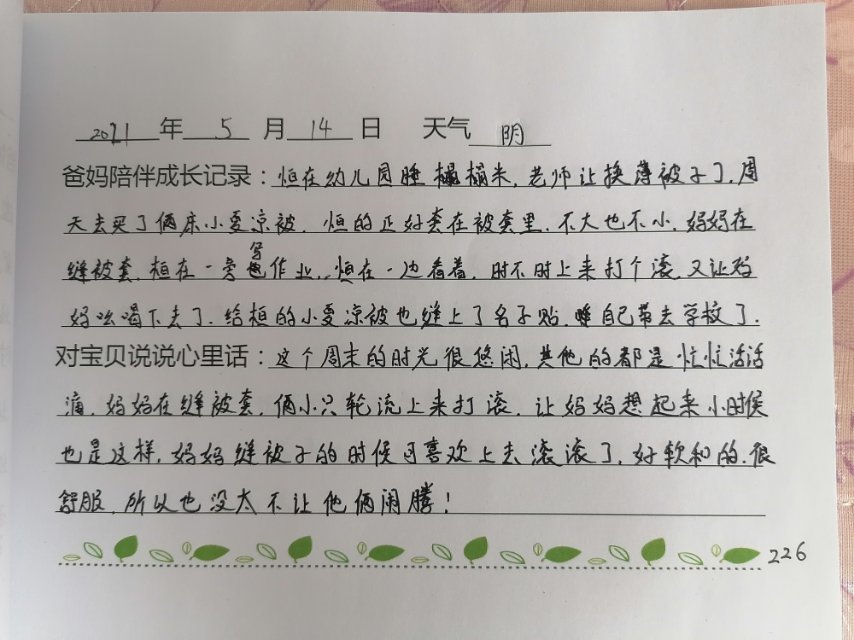 2021年 5 月 14 日 天气 阴
爸妈陪伴成长记录：恒在幼儿园睡榻榻米，老师让换薄被子了，周
天去买了俩床小夏凉被，恒的正好套在被套里，不大也不小，妈妈在
缝被套，桓在一旁写作业，恒在一边看着，时不时上来打个滚，又让妈
妈吆喝下去了，给桓的小夏凉被也缝上了名子贴，自己带去学校了．
对宝贝说说心里话：这个周末的时光很悠闲，其他的都是忙忙活活
滴，妈妈在缝被套，俩小只轮流上来打滚，让妈妈想起来小时候
也是这样，妈妈缝被子的时候可喜欢上去滚滚了，好软和的，很
舒服，所以也没太不让他俩闹腾！
226